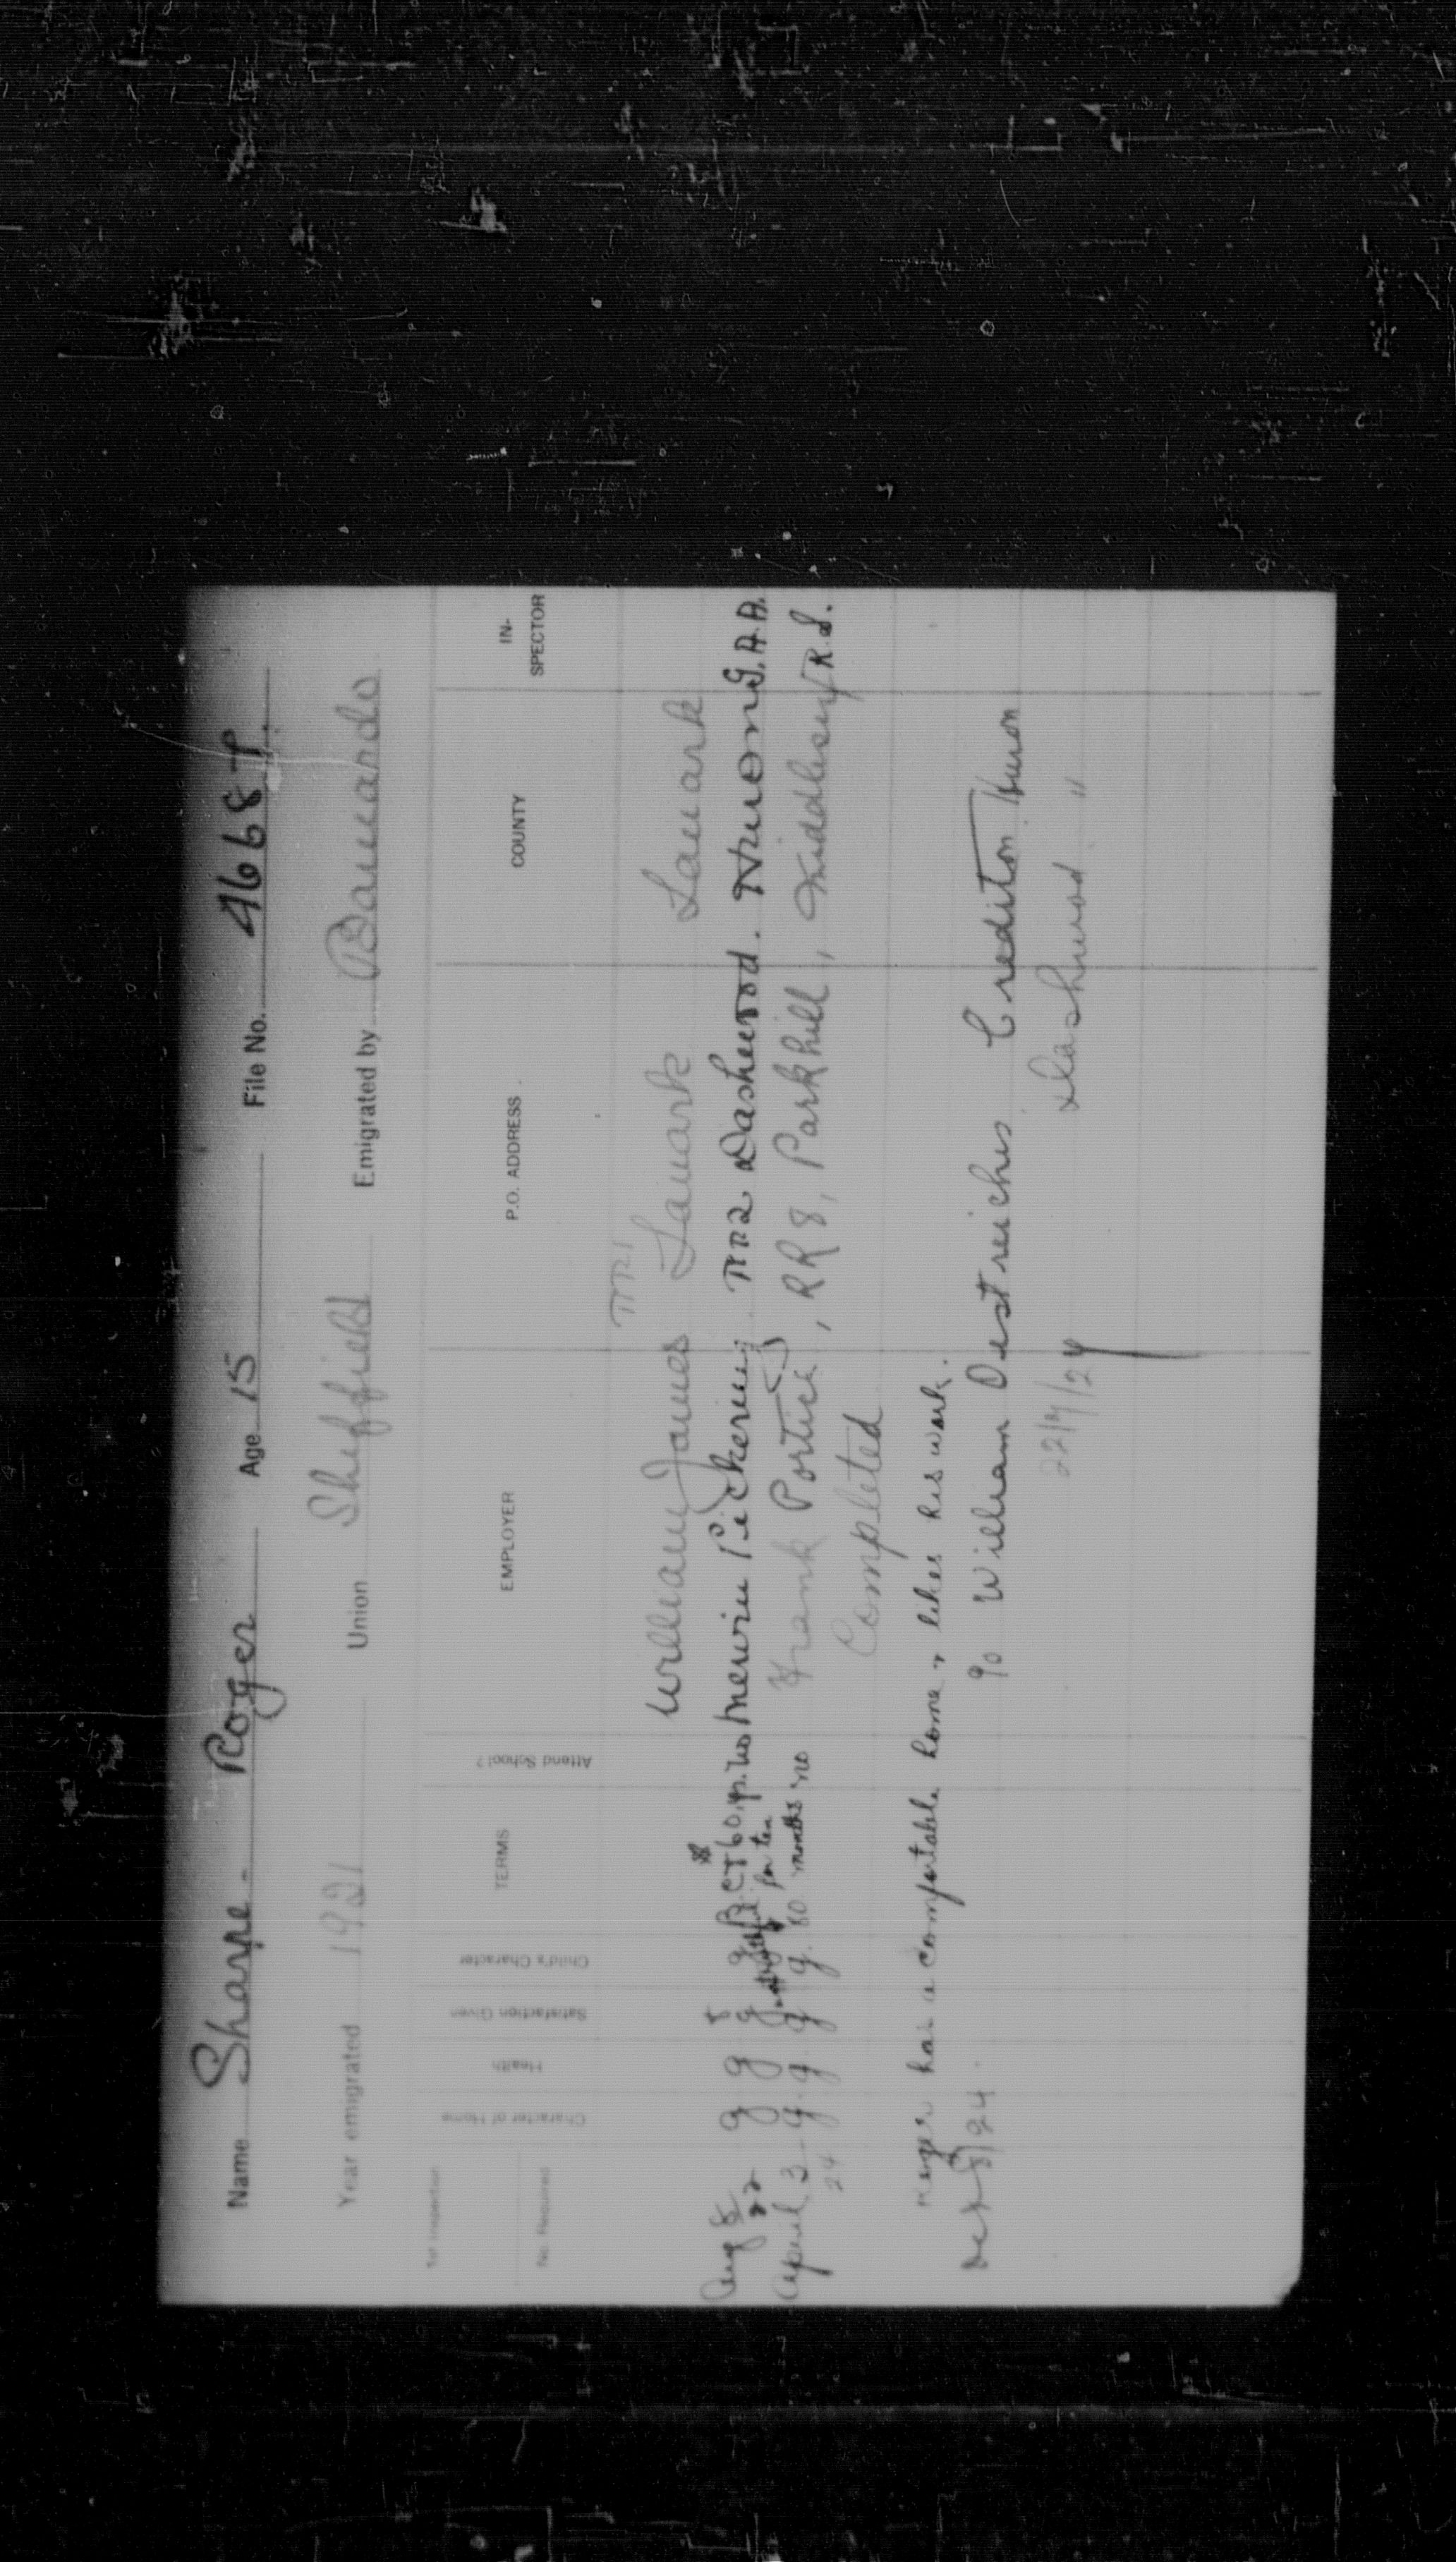 Name Sharpe - Roger Age 15 File No. 4668
Year emigrated 1921 Union Sheffield Emigrated by Barnardo
1st Inspection No. Required Character of Home Health Satisfaction Given Child's Character TERMS Attend School? EMPLOYER P.O. ADDRESS. COUNTY IN-SPECTOR
RR1
William James Lanark Lanark
Aug 8 22 g g g g B.C.+ $60 no Merwin Pickering. RR2 Dashwood. Huron G.A.A.
for ten
April 3 24 g. g. g. g. 80 months no Frank Portice, RR8, Parkhill, Middlesex R.S.
Completed
Roger has a comfortable home & likes his work.
Oct 8/24. c/o William Oestreicher Crediton Huron
22/7/24 Dashwood "